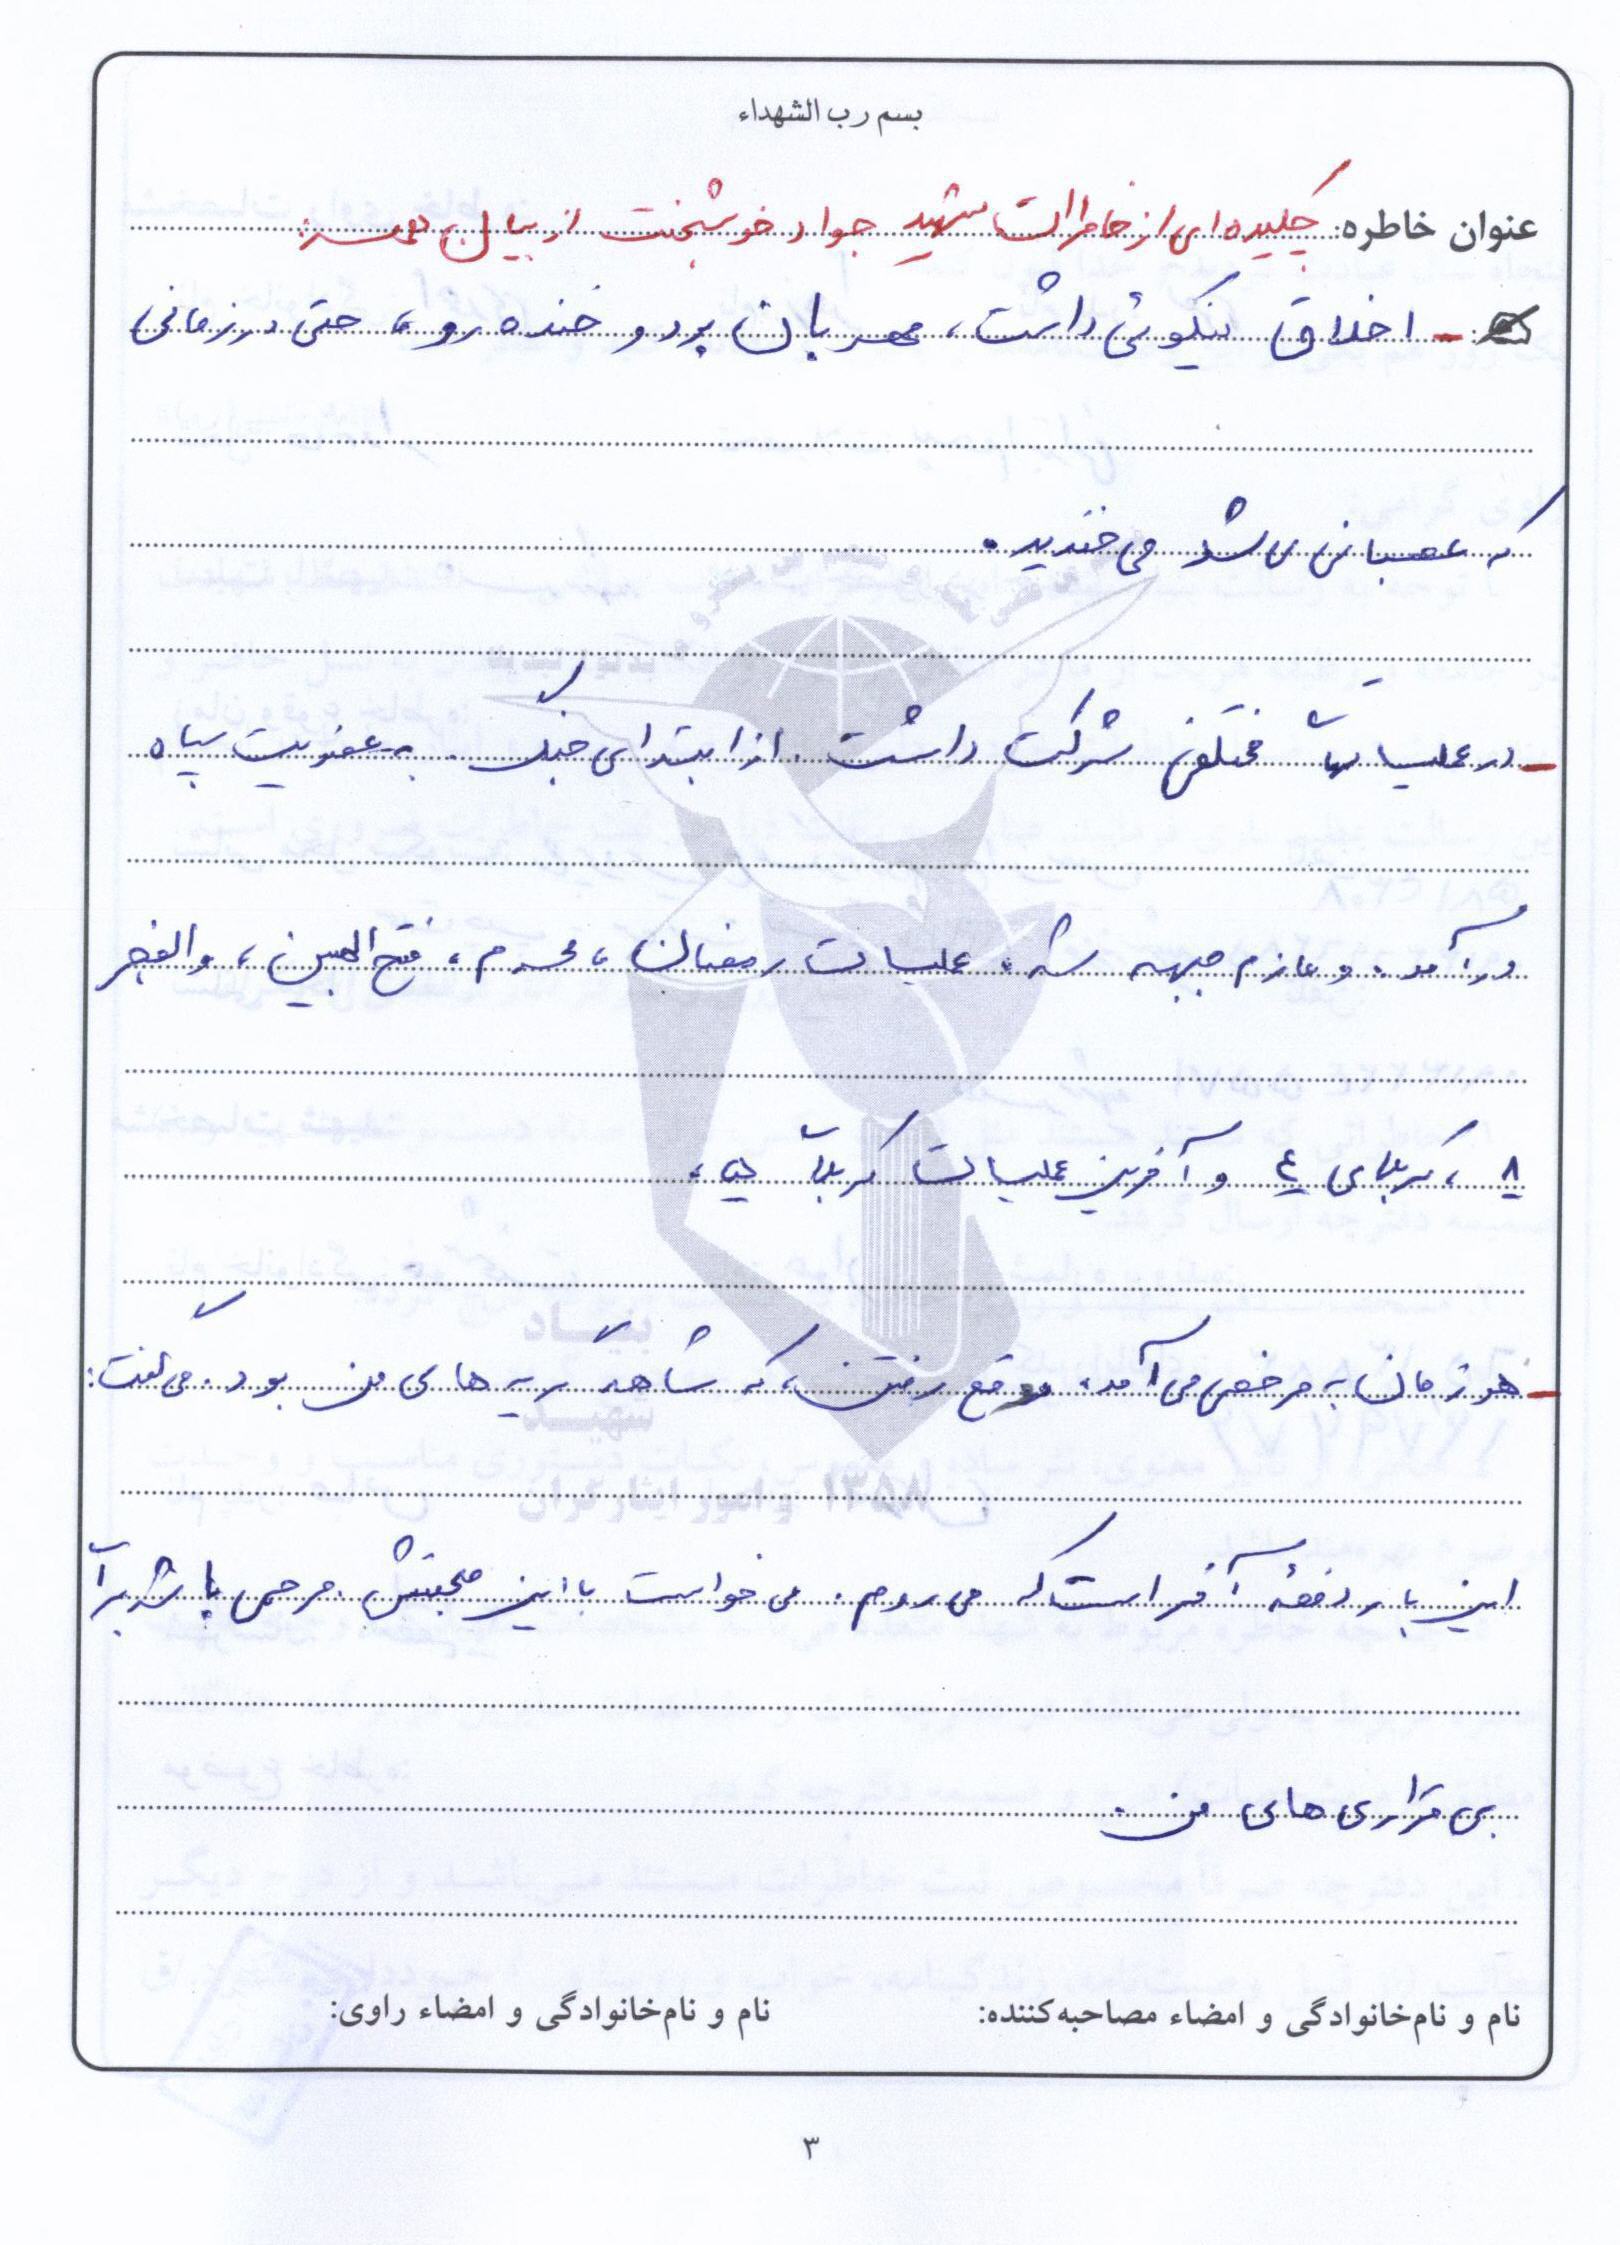 بسم رب الشهداء
عنوان خاطره: چکیده‌ای از خاطرات شهید جواد خوشبخت از بیان همسر:
- اخلاق نیکوئی داشت، مهربان بود و خنده رو، حتی در زمانی
که عصبانی می شد می خندید.
- در عملیاتهای مختلفی شرکت داشت. از ابتدای جنگ به عضویت سپاه
درآمد. و عازم جبهه شد. عملیات رمضان، محرم، فتح المبین، والفجر
۸، کربلای ٤ و آخرین عملیات کربلای
- هر زمان به مرخصی می آمد، موقع رفتن، که شاهد گریه های من بود. می گفت:
این بار دفعه آخر است که می روم. می خواست با این مرحمی باشد برای
بی قراری های من.
نام و نام‌خانوادگی و امضاء مصاحبه‌کننده: نام و نام‌خانوادگی و امضاء راوی:
۳